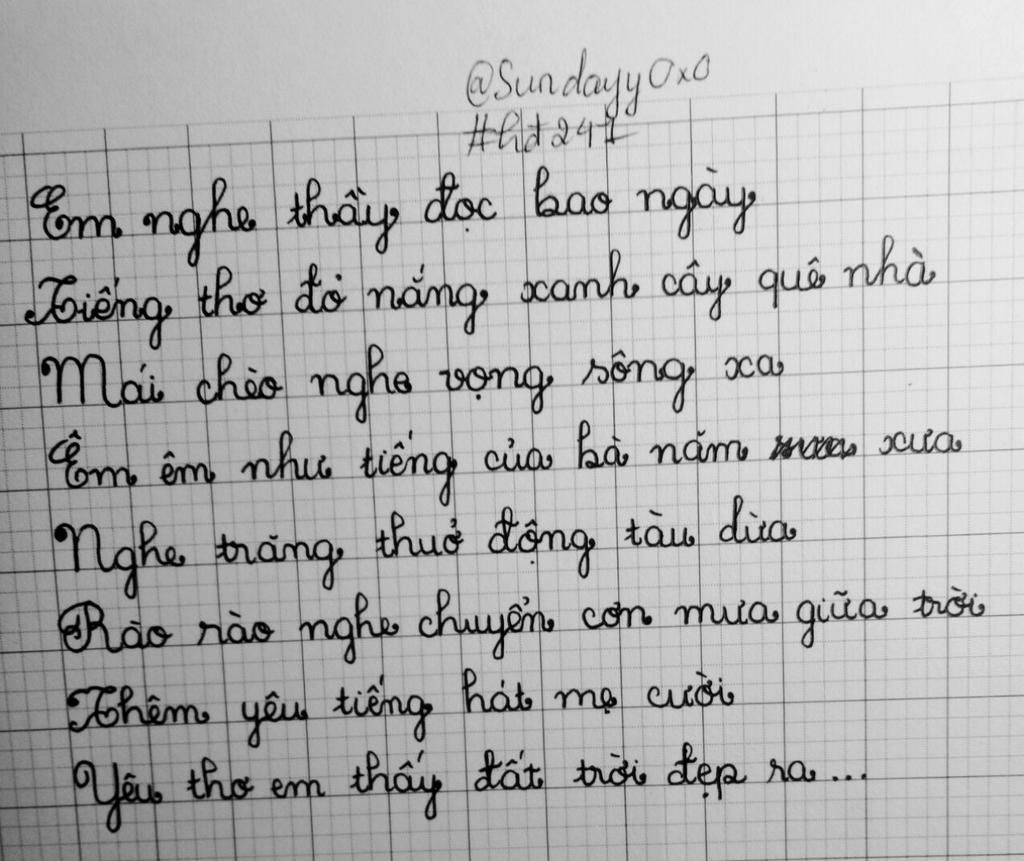 @Sundayy0x0
#hd247
Em nghe thầy đọc bao ngày
Tiếng thơ đỏ nắng xanh cây quê nhà
Mái chèo nghe vọng sông xa
Êm êm như tiếng của bà năm xưa
Nghe trăng thuở động tàu dừa
Rào rào nghe chuyển cơn mưa giữa trời
Thêm yêu tiếng hát mẹ cười
Yêu thơ em thấy đất trời đẹp ra...